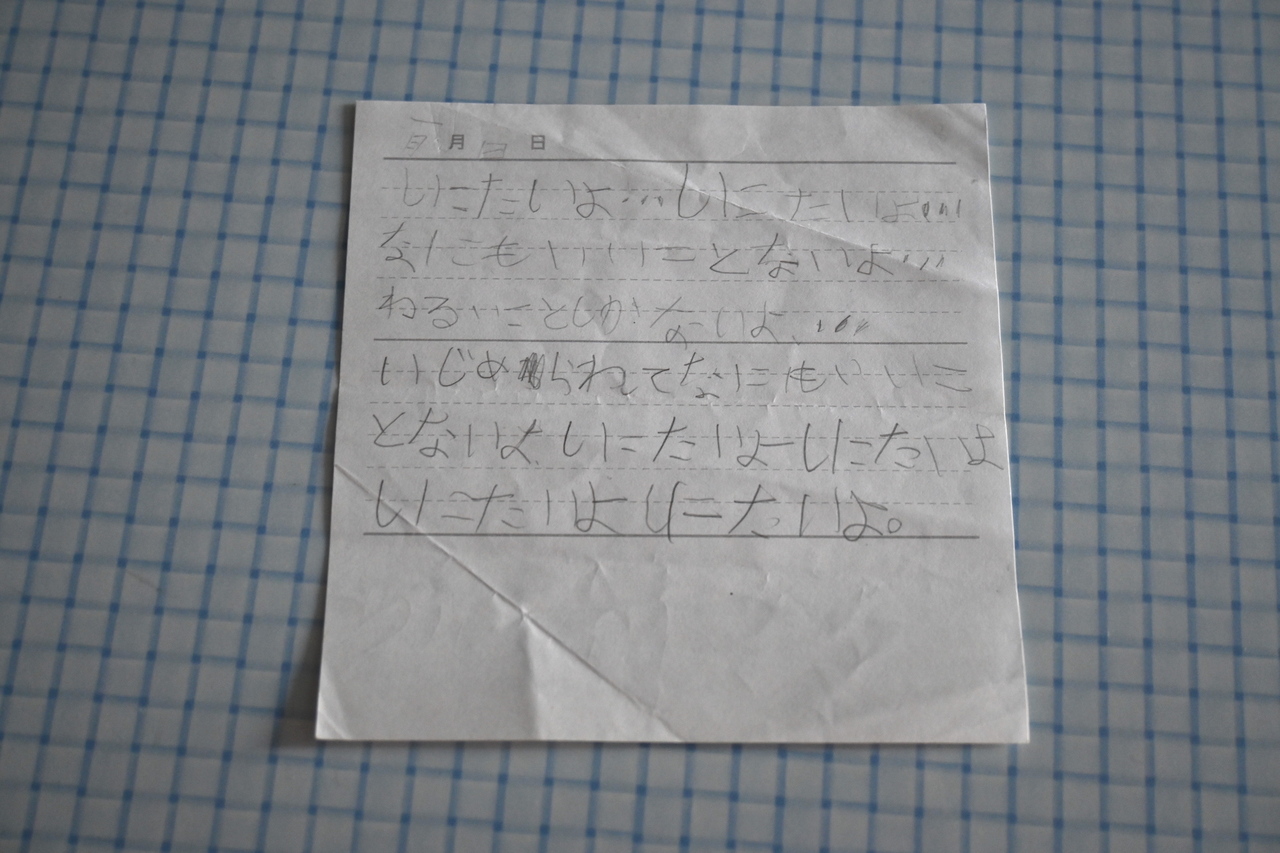 月 日
しにたいよ…しにたいよ…
なにもいいことないよ…
わるいことしかないよ、…
いじめられてなにもいいこ
とないよ しにたいよーしにたいよ
しにたいよしにたいよ。